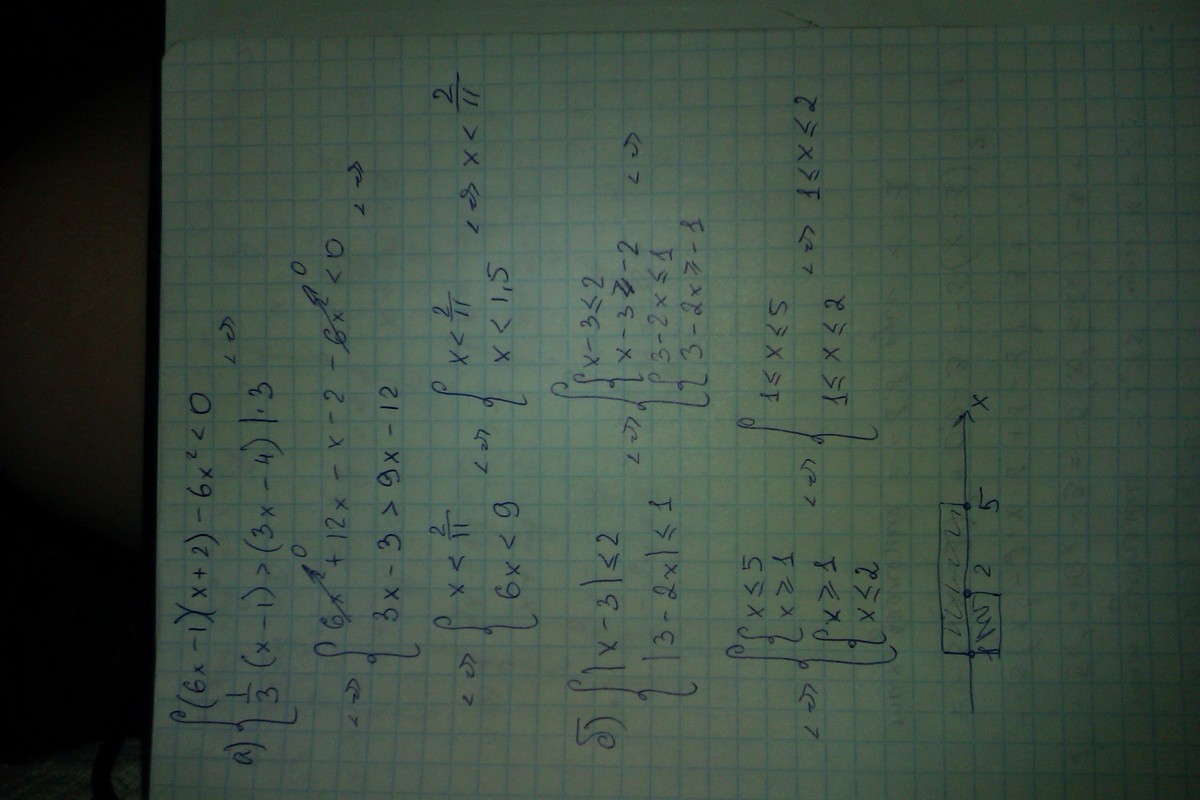 а) { (6x-1)(x+2)-6x²<0
1/3 (x-1)>(3x-4) |·3 <=>
<=> { 6x² 0 +12x-x-2-6x² 0 <0
3x-3>9x-12 <=>
<=> { x<2/11
6x<9 <=> { x<2/11
x<1,5 <=> x<2/11
б) { |x-3|≤2
|3-2x|≤1 <=> { { x-3≤2
x-3≥-2
{ 3-2x≤1
3-2x≥-1 <=>
<=> { { x≤5
x≥1
{ x≥1
x≤2 <=> { 1≤x≤5
1≤x≤2 <=> 1≤x≤2
1 2 5 x